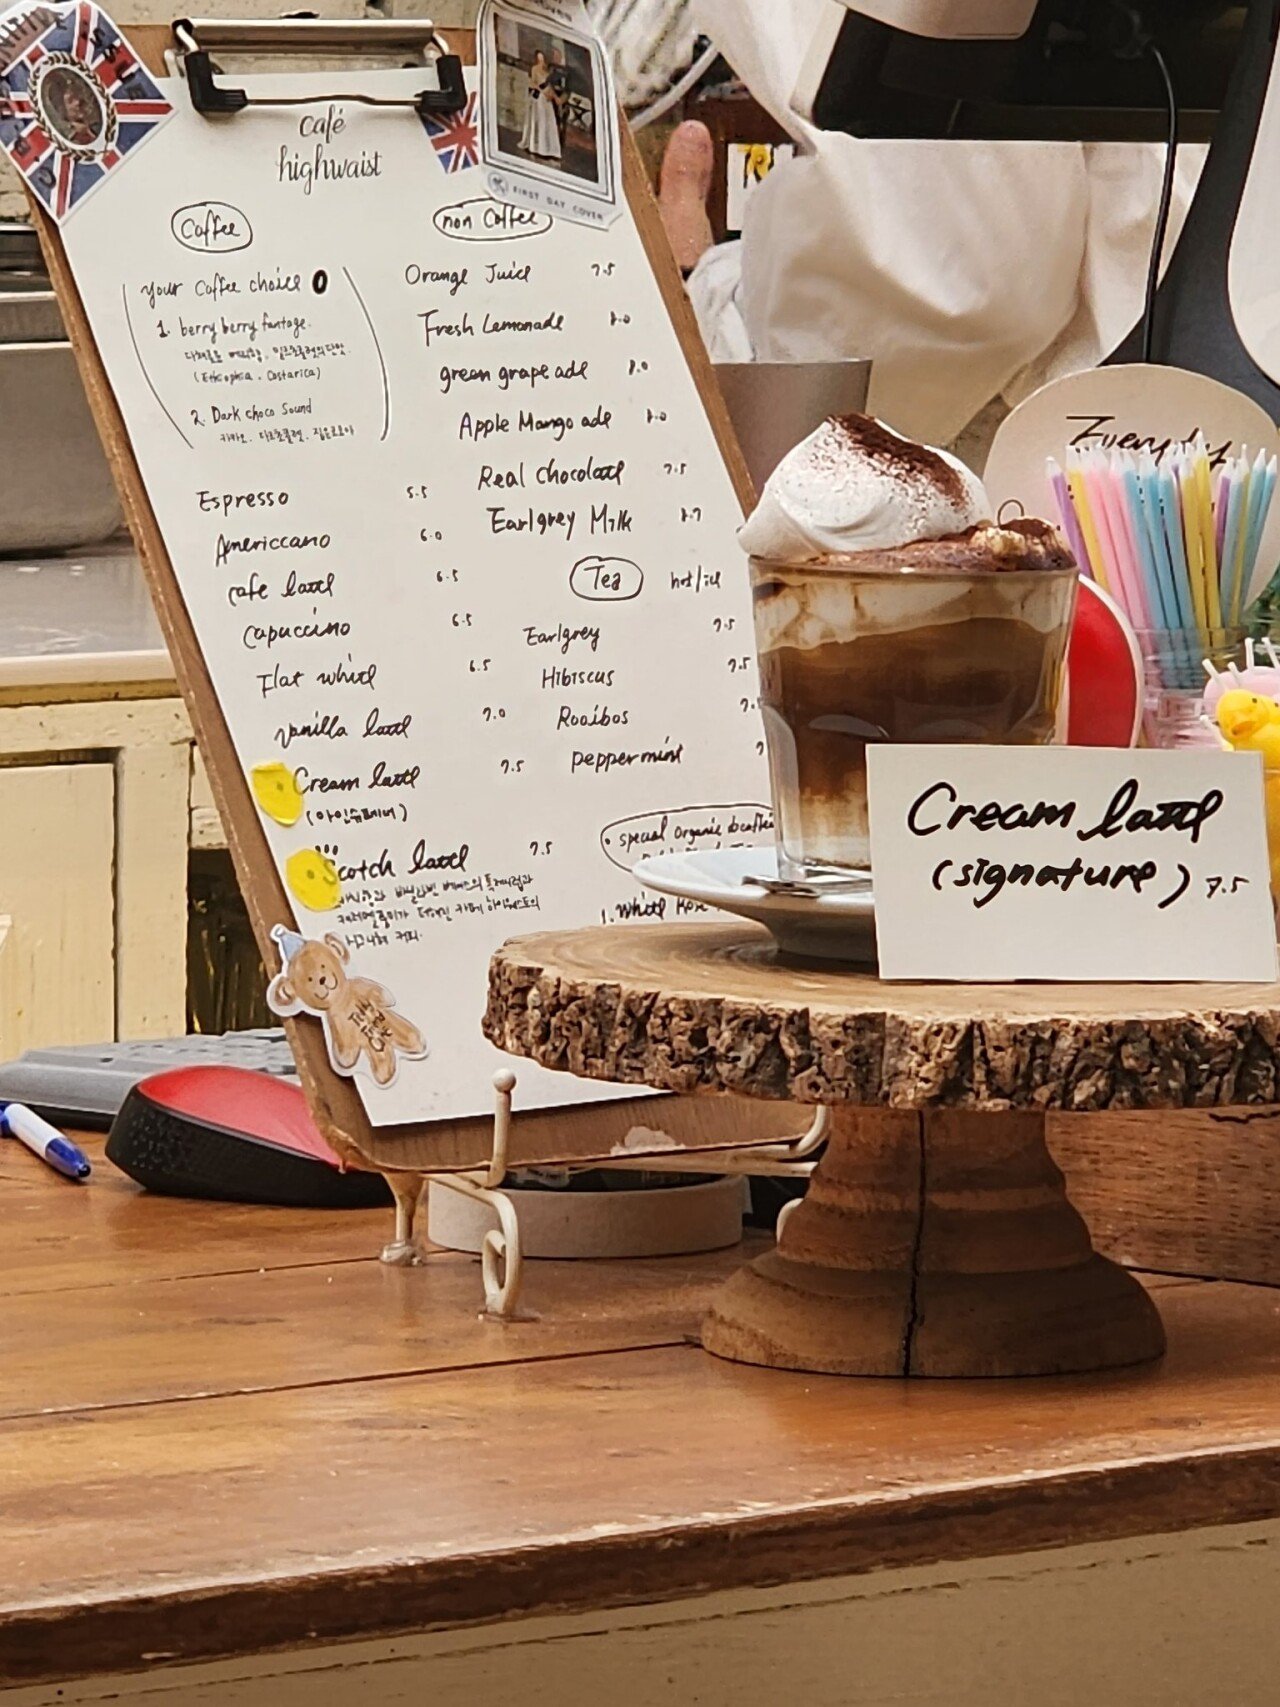 café
highwaist
Coffee
your Coffee choice
1. berry berry fantage.
(Ethiophia . Costarica)
2. Dark choco Sound
카카오. 다크초콜렛.
Espresso 5.5
Americcano 6.0
cafe latte 6.5
Capuccino 6.5
Flat white 6.5
vanilla latte 7.0
Cream latte 7.5
(아인슈페너)
Scotch latte 7.5
시그니처 커피.
non Coffee
Orange Juice 7.5
Fresh Lemonade 8.0
green grape ade 8.0
Apple Mango ade 8.0
Real chocolate 7.5
Earlgrey Milk
Tea hot/ice
Earlgrey 7.5
Hibiscus 7.5
Rooibos
peppermint
• special organic
1. White
FIRST DAY COVER
Cream latte
(signature) 7.5
Everyday